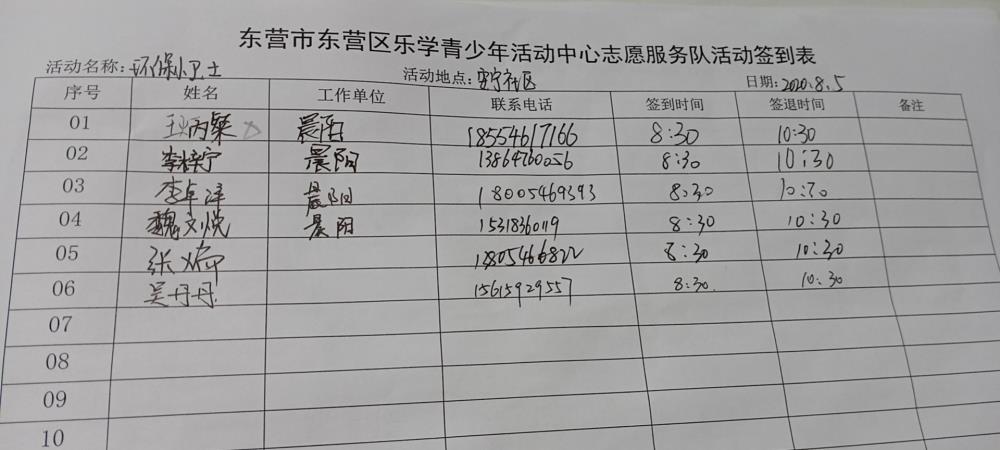 东营市东营区乐学青少年活动中心志愿服务队活动签到表
活动名称:环保小卫士 活动地点:安宁社区 日期:2020.8.5
序号 姓名 工作单位 联系电话 签到时间 签退时间 备注
01 丙粲 晨阳 18554617166 8:30 10:30
02 李梓宁 晨阳 13864760056 8:30 10:30
03 李卓洋 晨阳 18005469393 8:30 10:30
04 魏文悦 晨阳 15318360119 8:30 10:30
05 张 1805466822 8:30 10:30
06 吴丹丹 15615929557 8:30 10:30
07
08
09
10